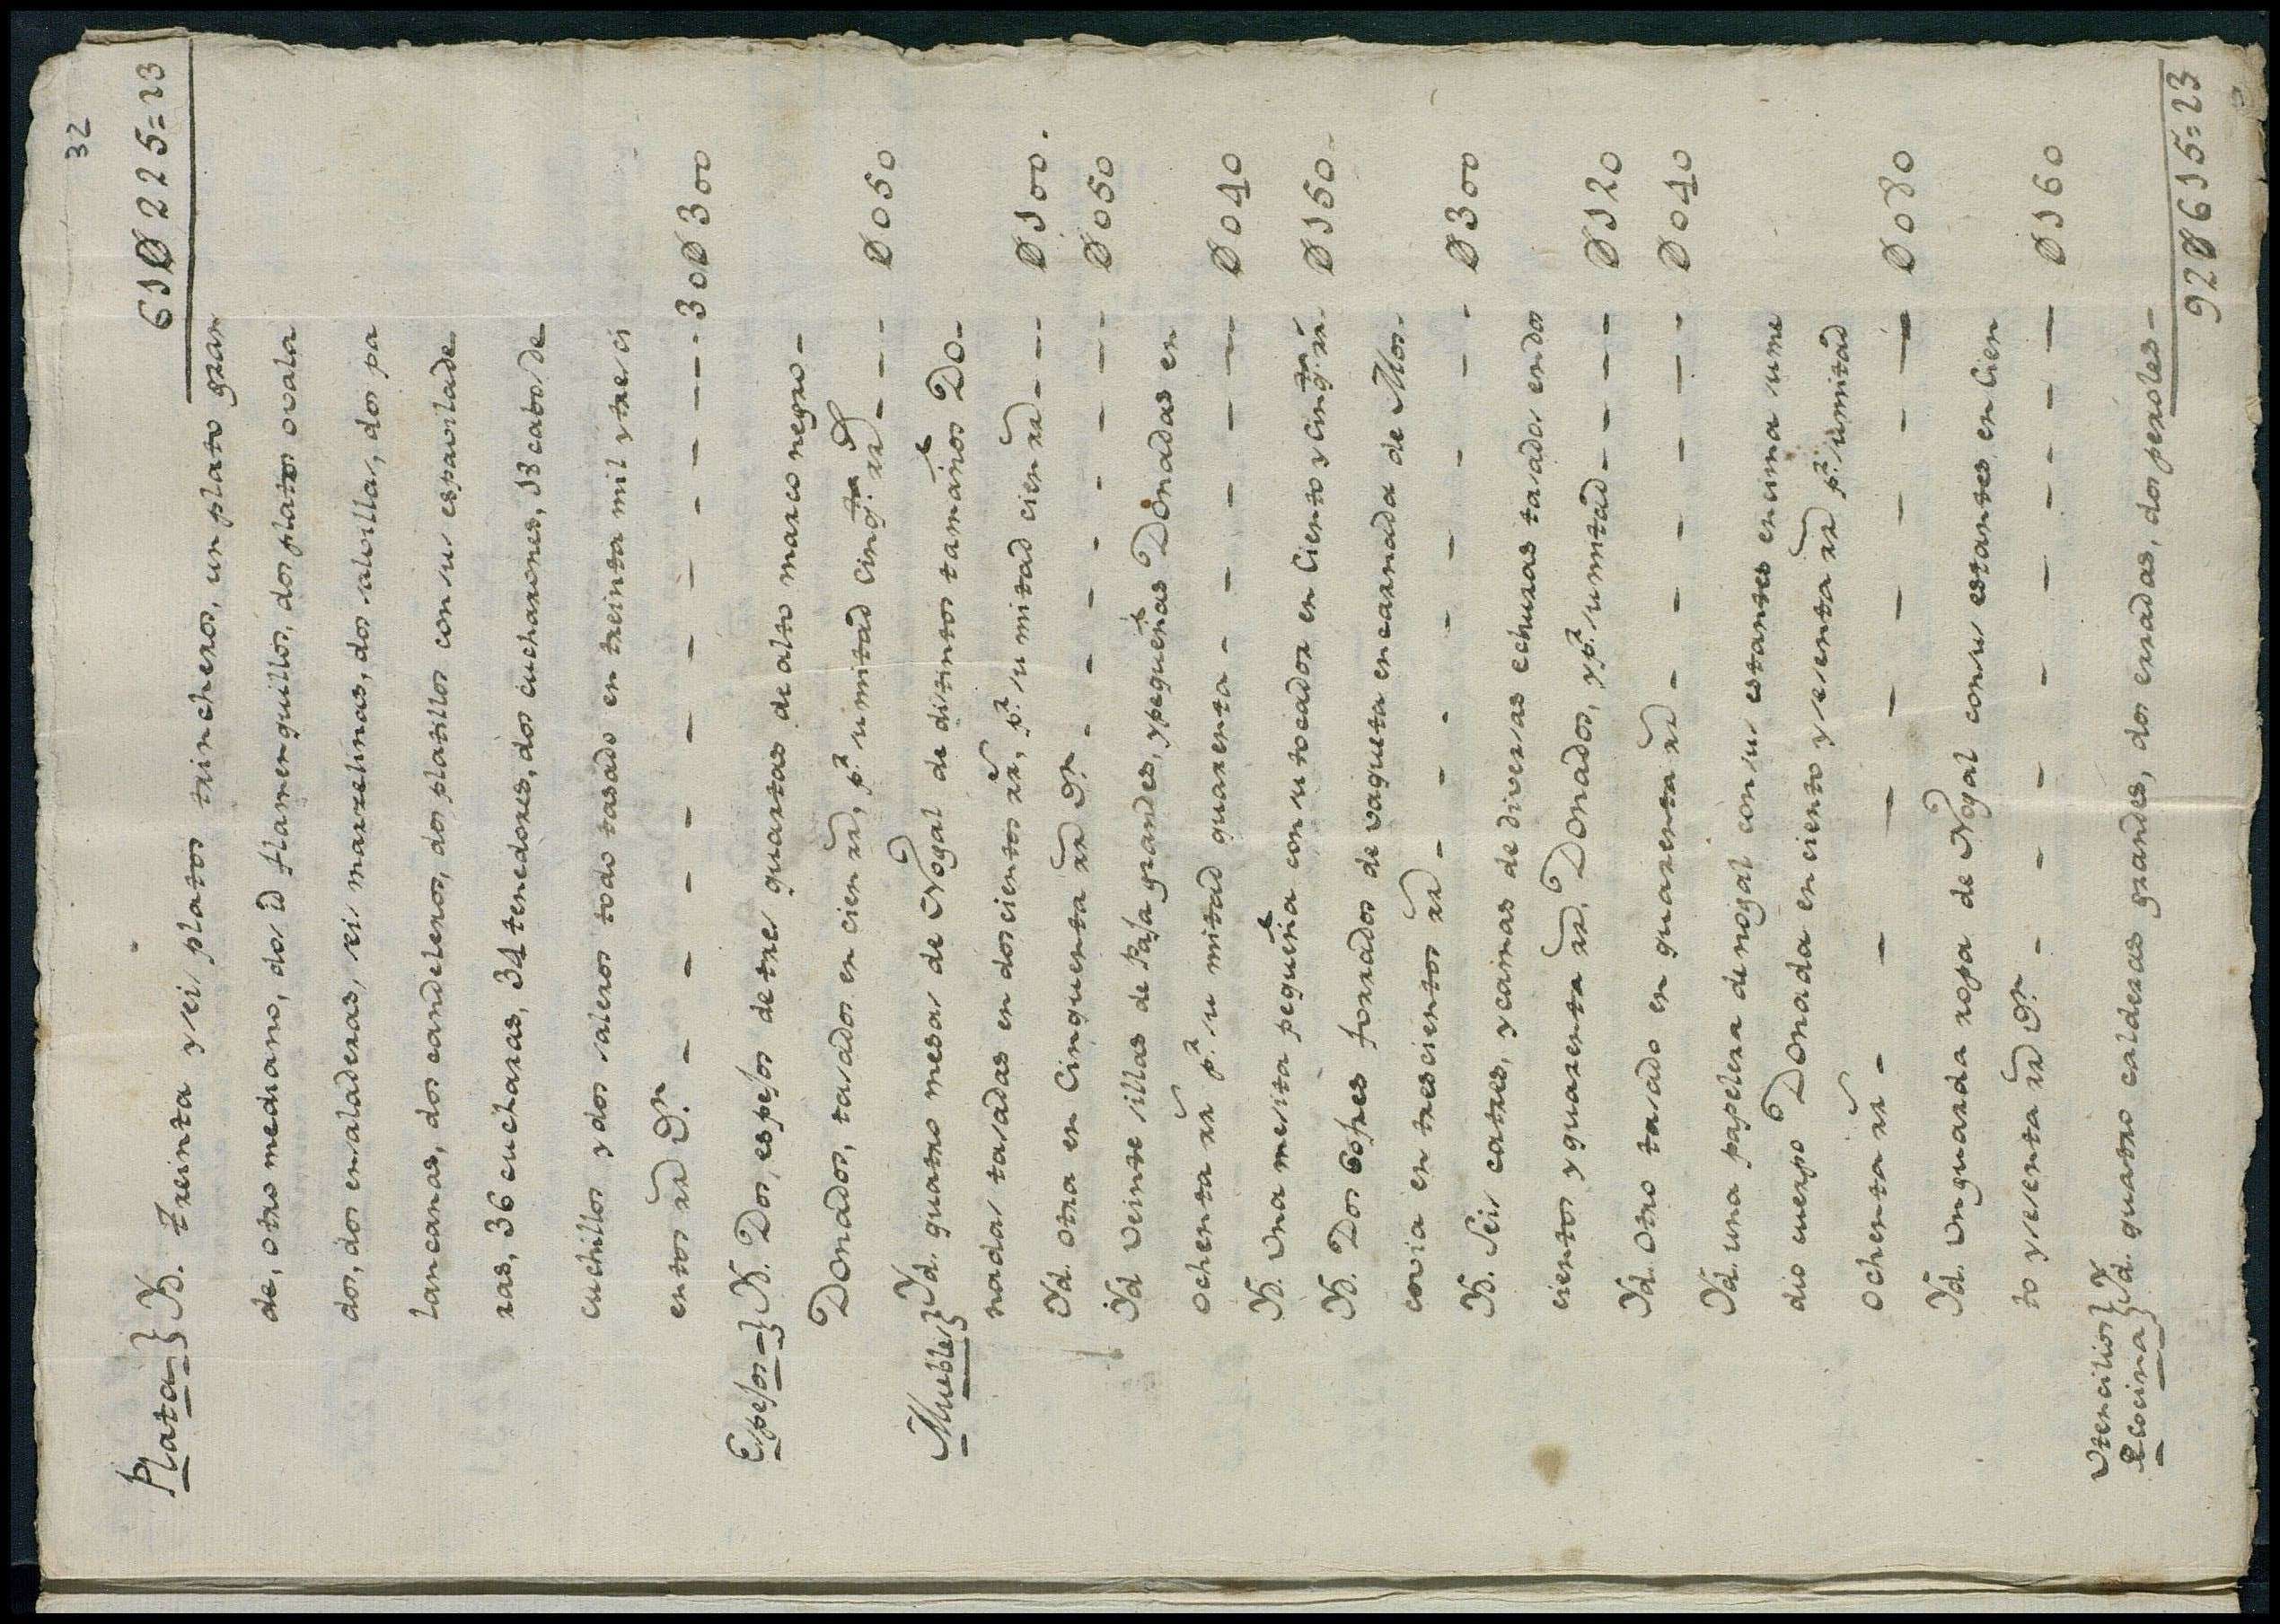 32
61Ø225=23
Plata} Yd. treinta y seis platos trincheros, un plato gran
de, otro mediano, dos id flamenquillos, dos platos ovala
dos, dos ensaladeras, seis marzelinas, dos salvillas, dos pa
lancanas, dos candeleros, dos platillos con sus espaviladе
ras, 36 cucharas, 34 tenedores, dos cucharones, 13 cabos de
cuchillos y dos saleros todo tasado en treinta mil y tresci
entos rs. vn. - - - - - - - - - - - 30Ø300
Espejos} Yd. Dos, espejos de tres quartas de alto marco negro -
Donados, tasados en cien rs, pr. su mitad cinqta. rs - - - Ø050
Muebles} Yd. quatro mesas de Nogal de distintos tamaños Do-
nadas tasadas en doscientos rs, pr. su mitad cien rs - - - Ø100.
Yd. otra en Cinquenta rs vn. - - - - - - - Ø050
Yd veinte sillas de paja grandes, y pequeñas Donadas en
ochenta rs pr. su mitad quarenta - - - - - - Ø040
Yd. Una mesita pequeña con su tocador en Ciento y cinqta. rs. Ø150.
Yd. Dos Cofres forrados de vaqueta encarnada de Mos-
covia en trescientos rs - - - - - - - - Ø300
Yd. Seis catres, y camas de diversas echuras tasados en dos
cientos y quarenta rs, Donados, y pr. su mitad - - - - Ø120
Yd. Otro tasado en quarenta rs - - - - - - Ø040
Yd. una papelera de nogal con sus estantes encima u me
dio cuerpo Donada en ciento y sesenta rs pr. su mitad
ochenta rs - - - - - - - - - Ø080
Yd. un guarda ropa de Nogal con sus estantes en Cien
to y sesenta rs vn - - - - - - - - - Ø160
Utencilios
de cocina} Yd. quatro calderas grandes, dos erradas, dos peroles -
92Ø615=23